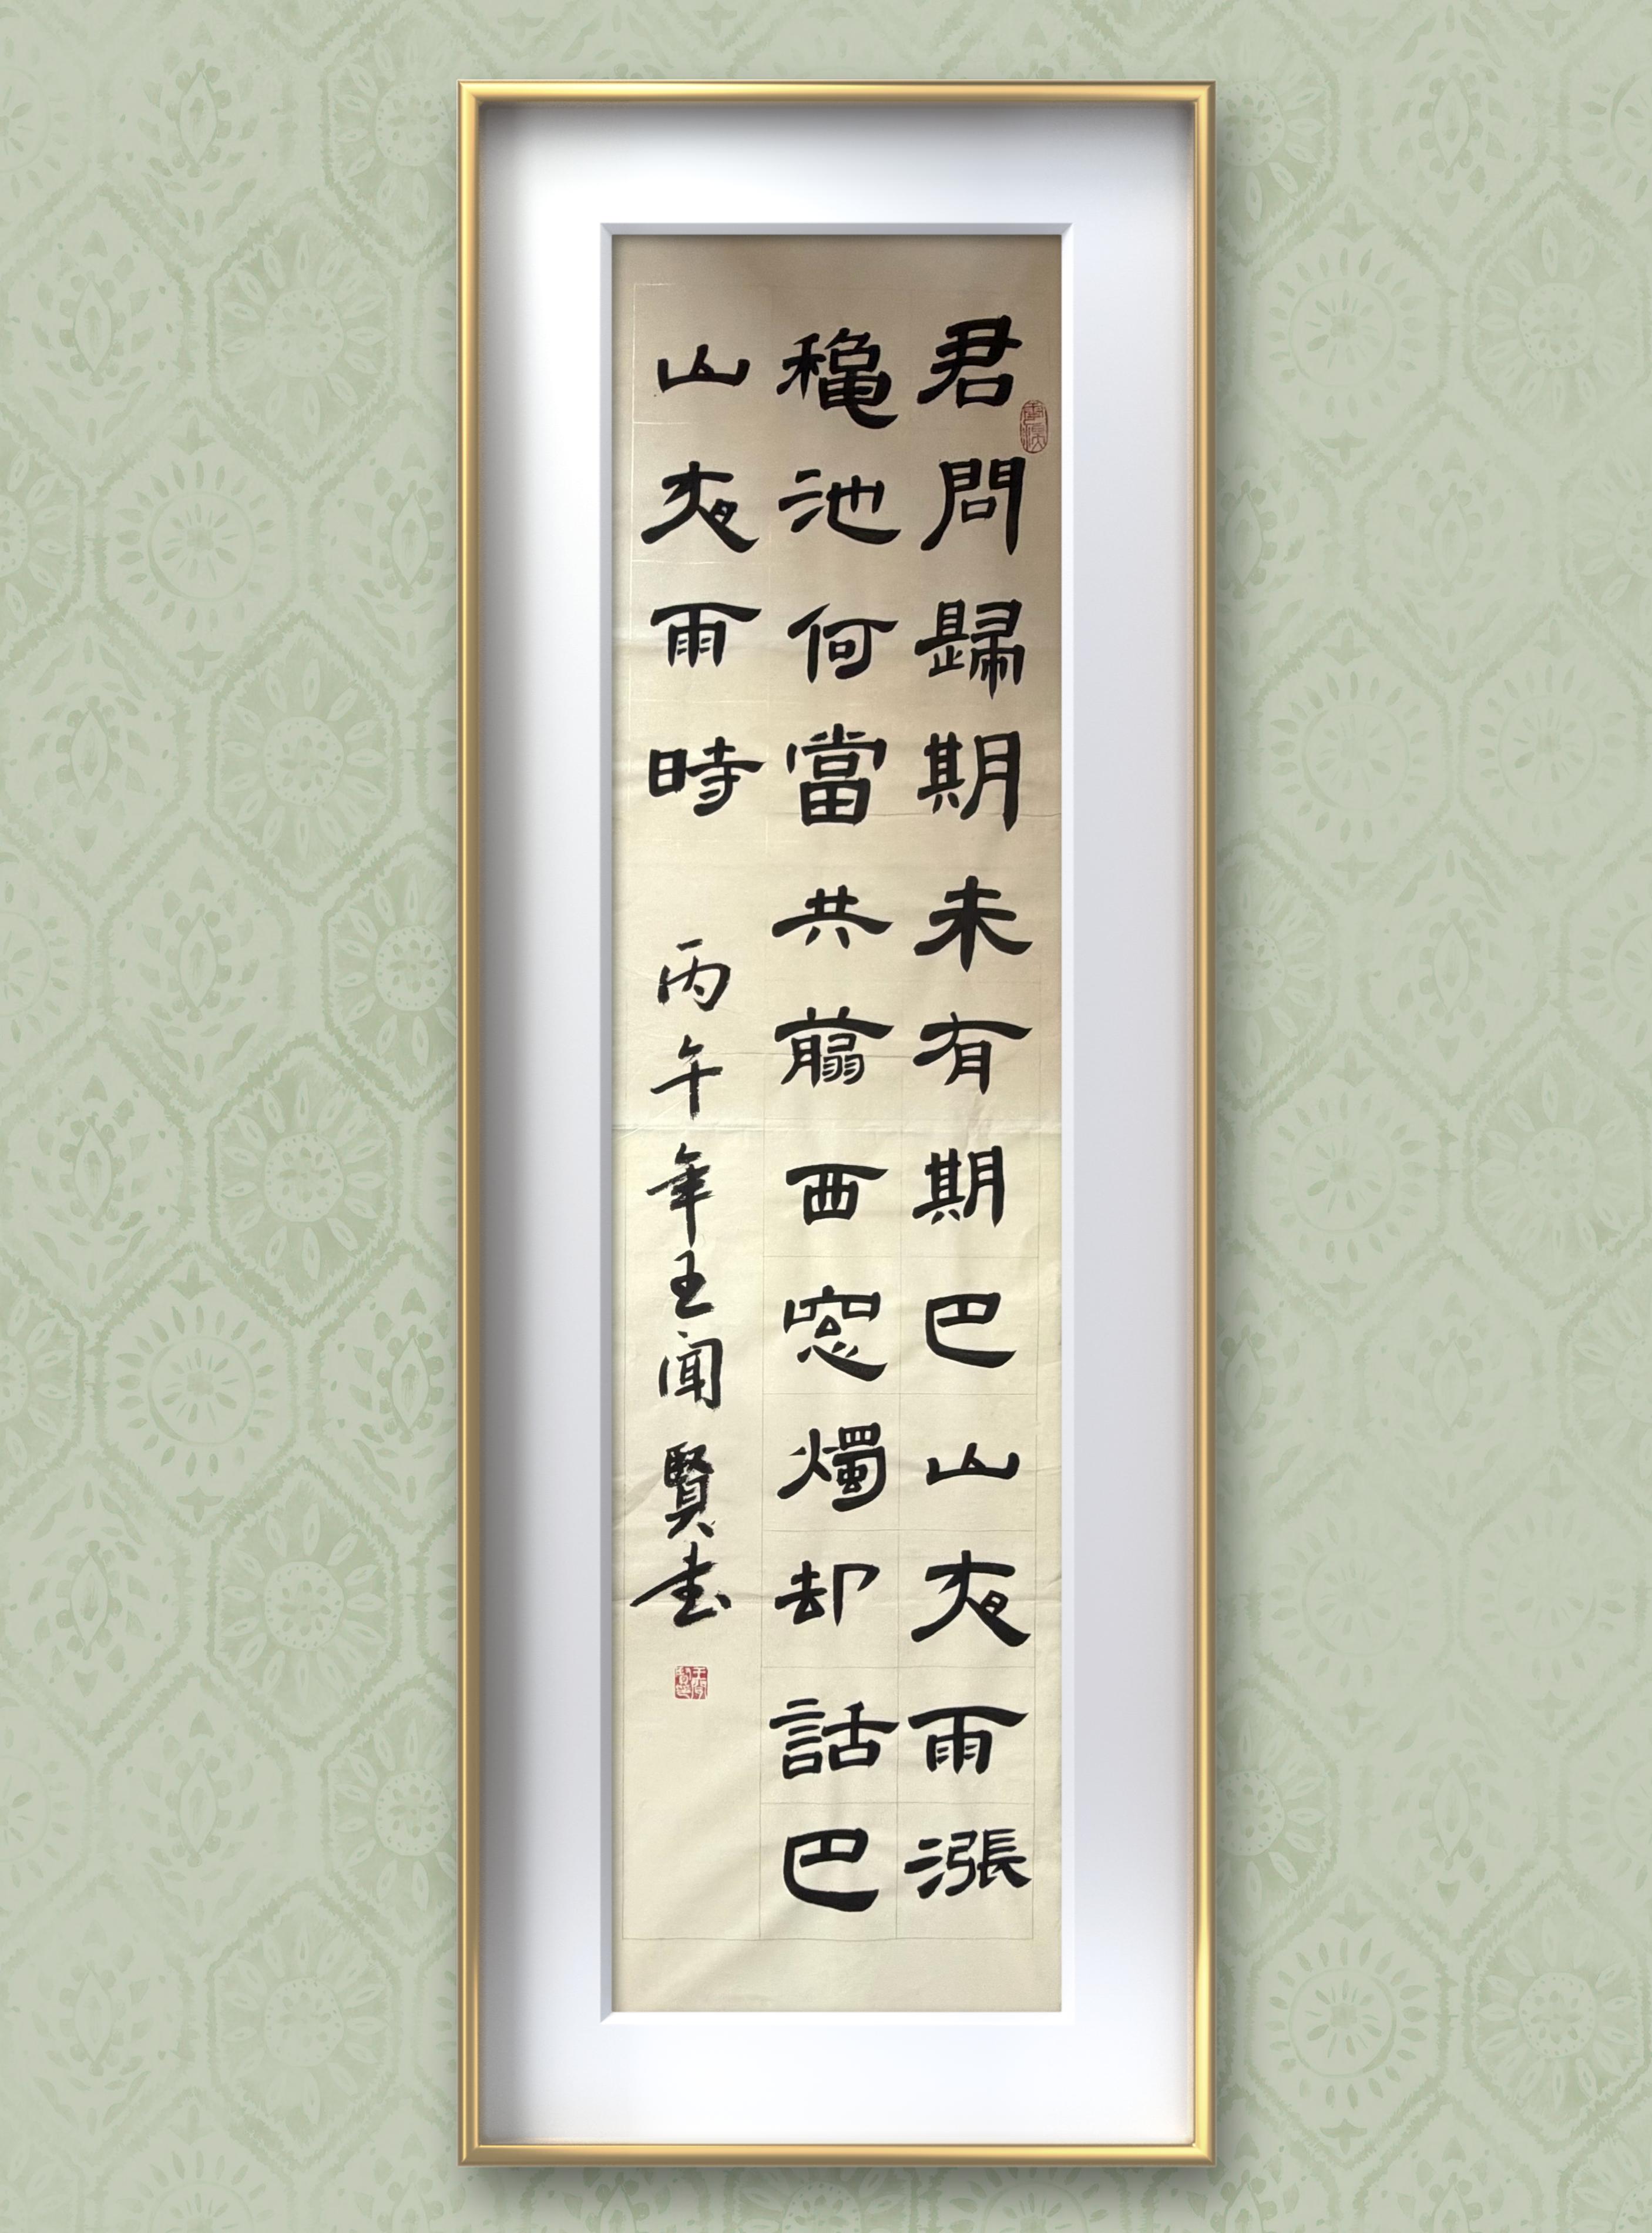 君問歸期未有期巴山夜雨漲
穐池何當共翦西窓燭却話巴
山夜雨時 丙午年王闻賢書